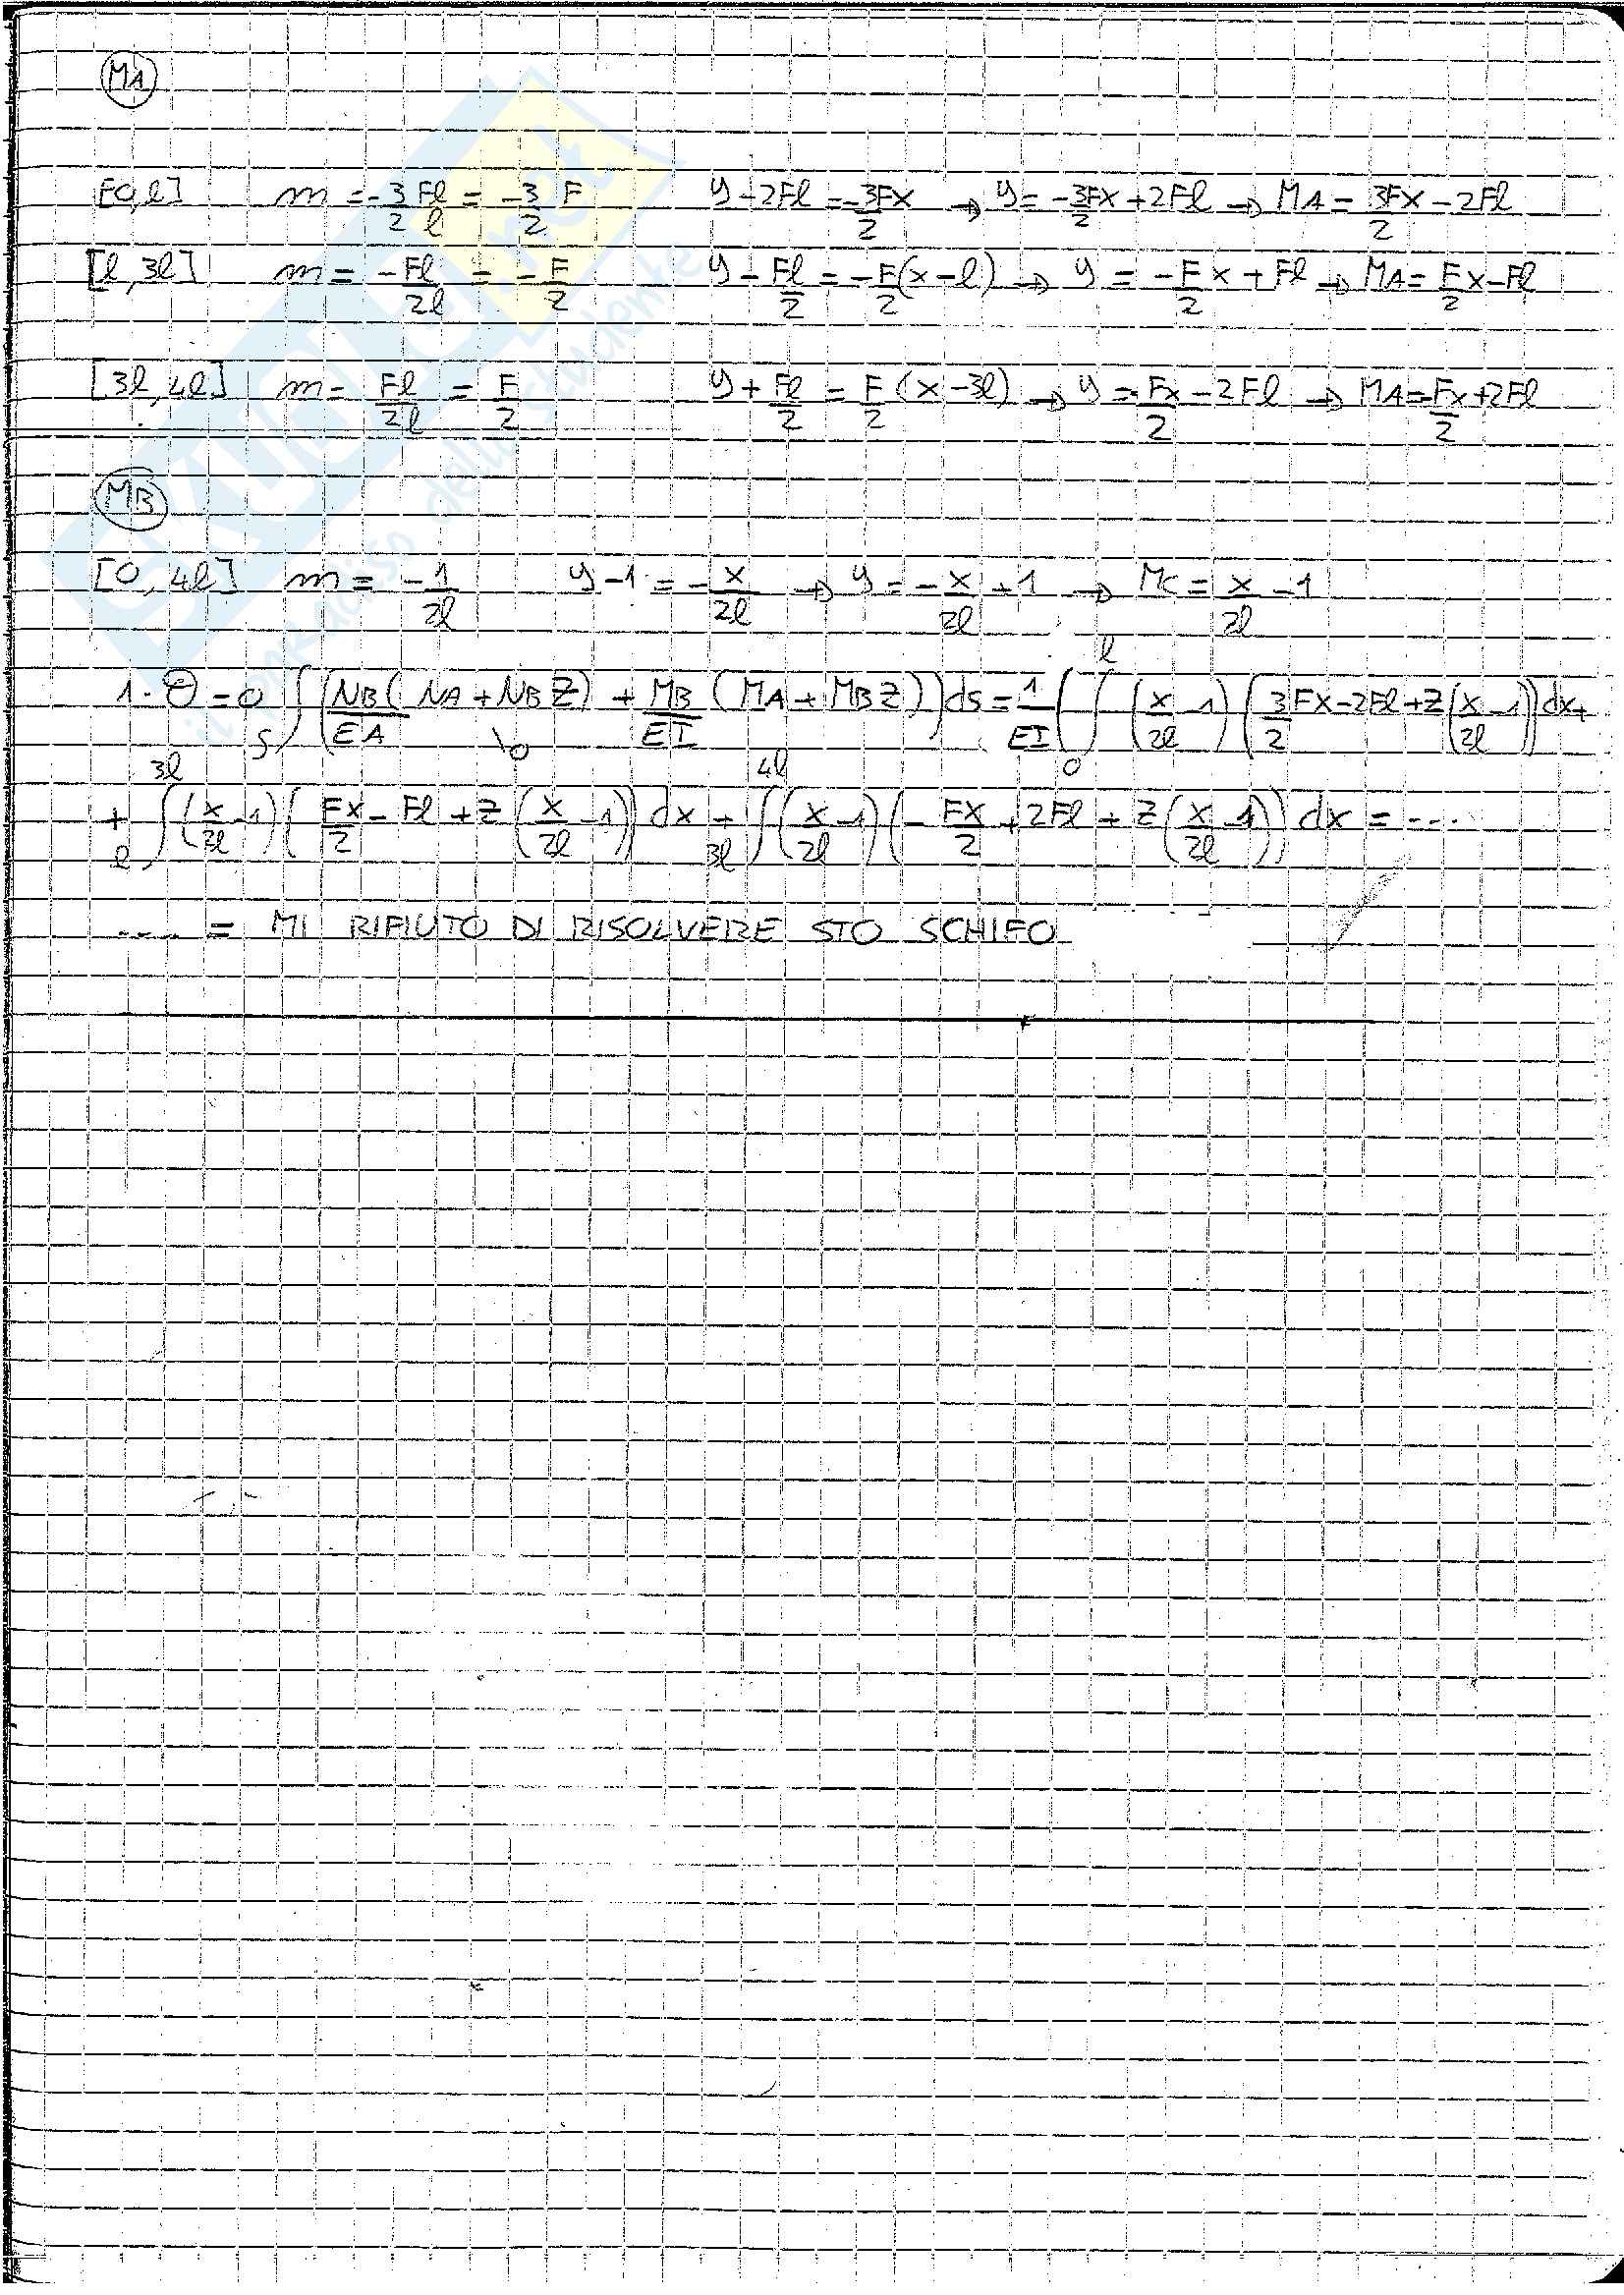 MA
[0,l] m = -3/2 Fl/l = -3/2 F y-2Fl = -3Fx/2 → y = -3Fx/2 + 2Fl → MA = 3Fx/2 - 2Fl
[l,3l] m = -Fl/2l = -F/2 y - Fl/2 = -F/2(x-l) → y = -F/2 x + Fl → MA = F/2 x - Fl
[3l,4l] m = Fl/2l = F/2 y + Fl/2 = F/2 (x-3l) → y = Fx/2 - 2Fl → MA = -Fx/2 + 2Fl
MB
[0,4l] m = -1/2l y-1 = -x/2l → y = -x/2l + 1 → MC = x/2l - 1
1·Θ = 0 ∫S (NB/EA (NA + NB Z) + MB/EI (MA + MB Z)) ds = 1/EI ( ∫0^l (x/2l - 1) (3/2 Fx - 2Fl + Z(x/2l - 1)) dx +
+ ∫l^3l (x/2l - 1) (Fx/2 - Fl + Z (x/2l - 1)) dx + ∫3l^4l (x/2l - 1) (-Fx/2 + 2Fl + Z (x/2l - 1)) dx = ...
.... = MI RIFIUTO DI RISOLVERE STO SCHIFO